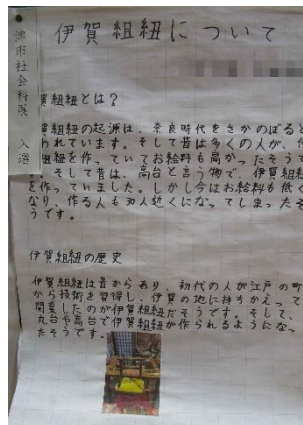 津市社会科展 入選
伊賀組紐について
賀組紐とは?
賀組紐の起源は、奈良時代をさかのぼると
われています。そして昔は多くの人が、
組紐を作っていてお給料も高かったそうで
そして昔は、高台と言う物で、伊賀組紐
を作っていました。しかし今はお給料も低く
なり、作る人も
近くになってしまったそ
うです。
伊賀組紐の歴史
伊賀組紐は昔からあり、初代の人が江戸の町
から技術を習得し、伊賀の地に持ちかえって
開業したのが伊賀組紐だそうです。そして、
丸台や高台で伊賀組紐が作られるようになっ
たそうです。